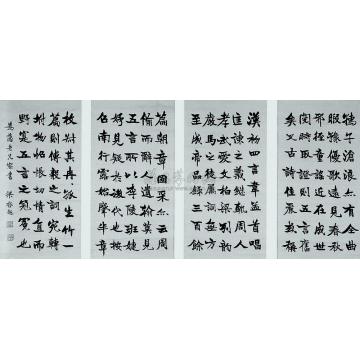 孺子滄浪亦有全曲
暇豫優歌遠見春秋
邪徑童謠近在成世
閱時取
矣又古詩佳麗或稱
漢初四言韋孟首唱
匡諫之義繼軌周人
孝武愛文柏梁列韻
嚴馬之徒屬辭無方
至成帝品錄三百餘
篇朝章國采亦云周
備而辭人遺翰莫見
五言所以李陵班婕
妤見疑於後代也按
召南行露始肇半章
枚叔其孤竹一
篇則傅毅之詞
附物怊悵切情直而
野實五言之冠冕也
梁啟超